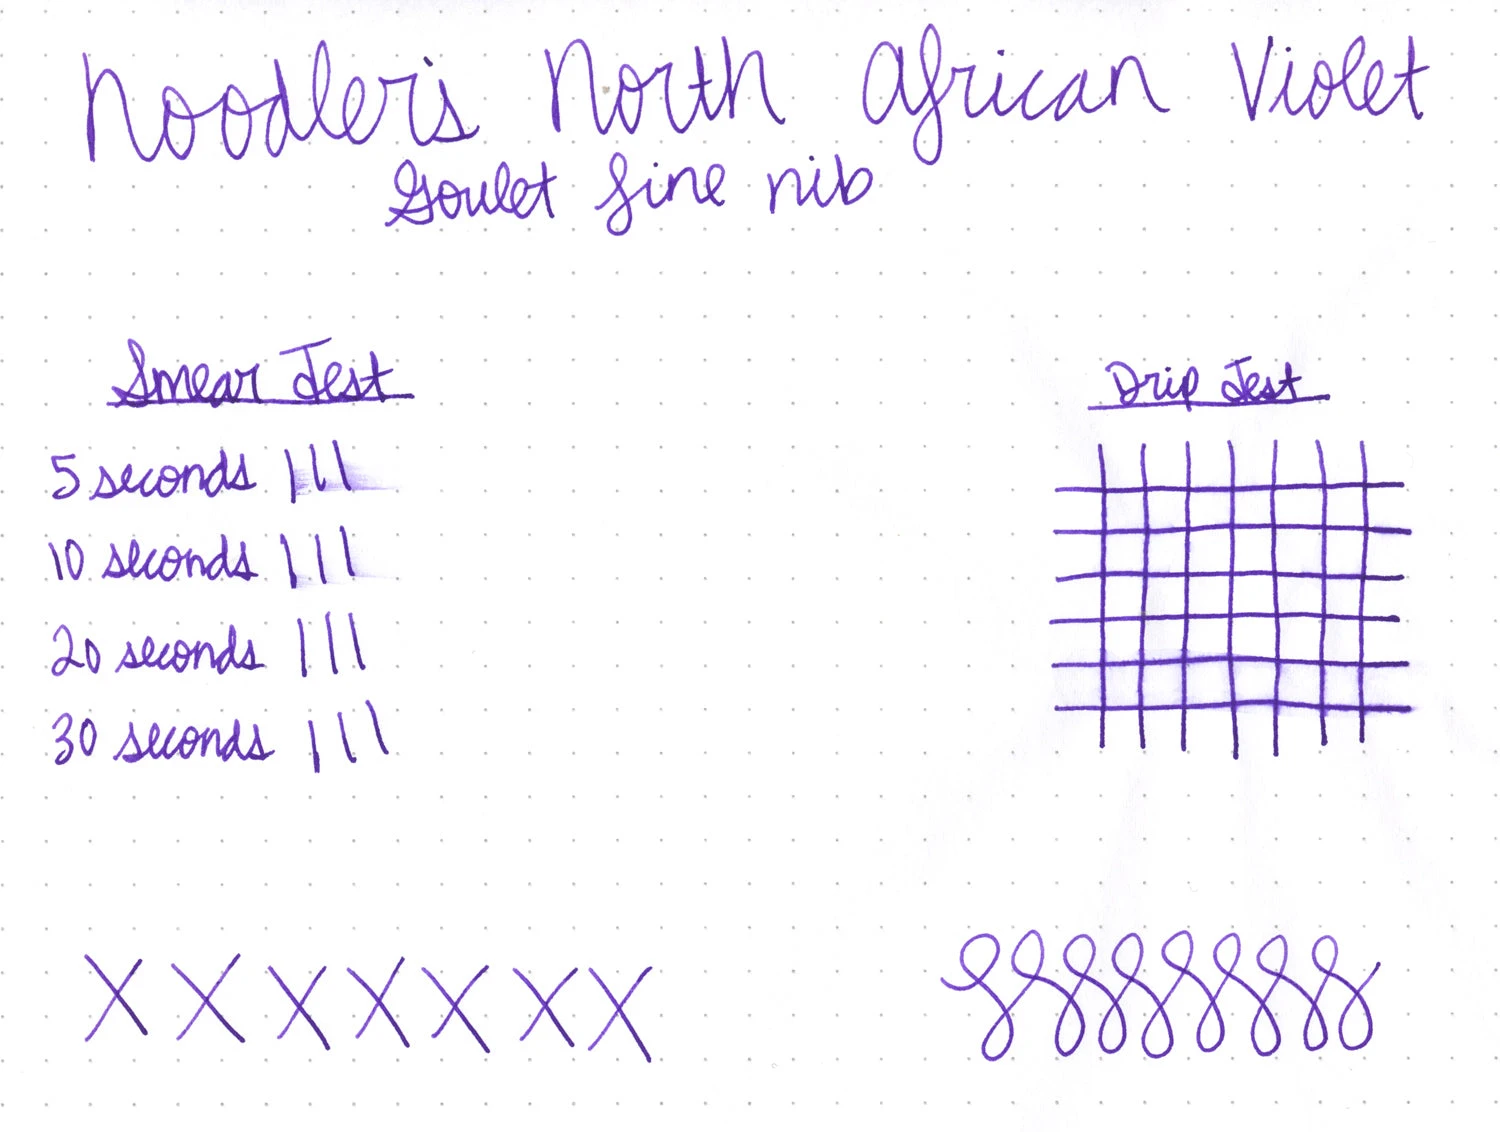 Noodler's North African Violet
Goulet fine nib
Smear Test
5 seconds
10 seconds
20 seconds
30 seconds
Drip Test
X X X X X X X